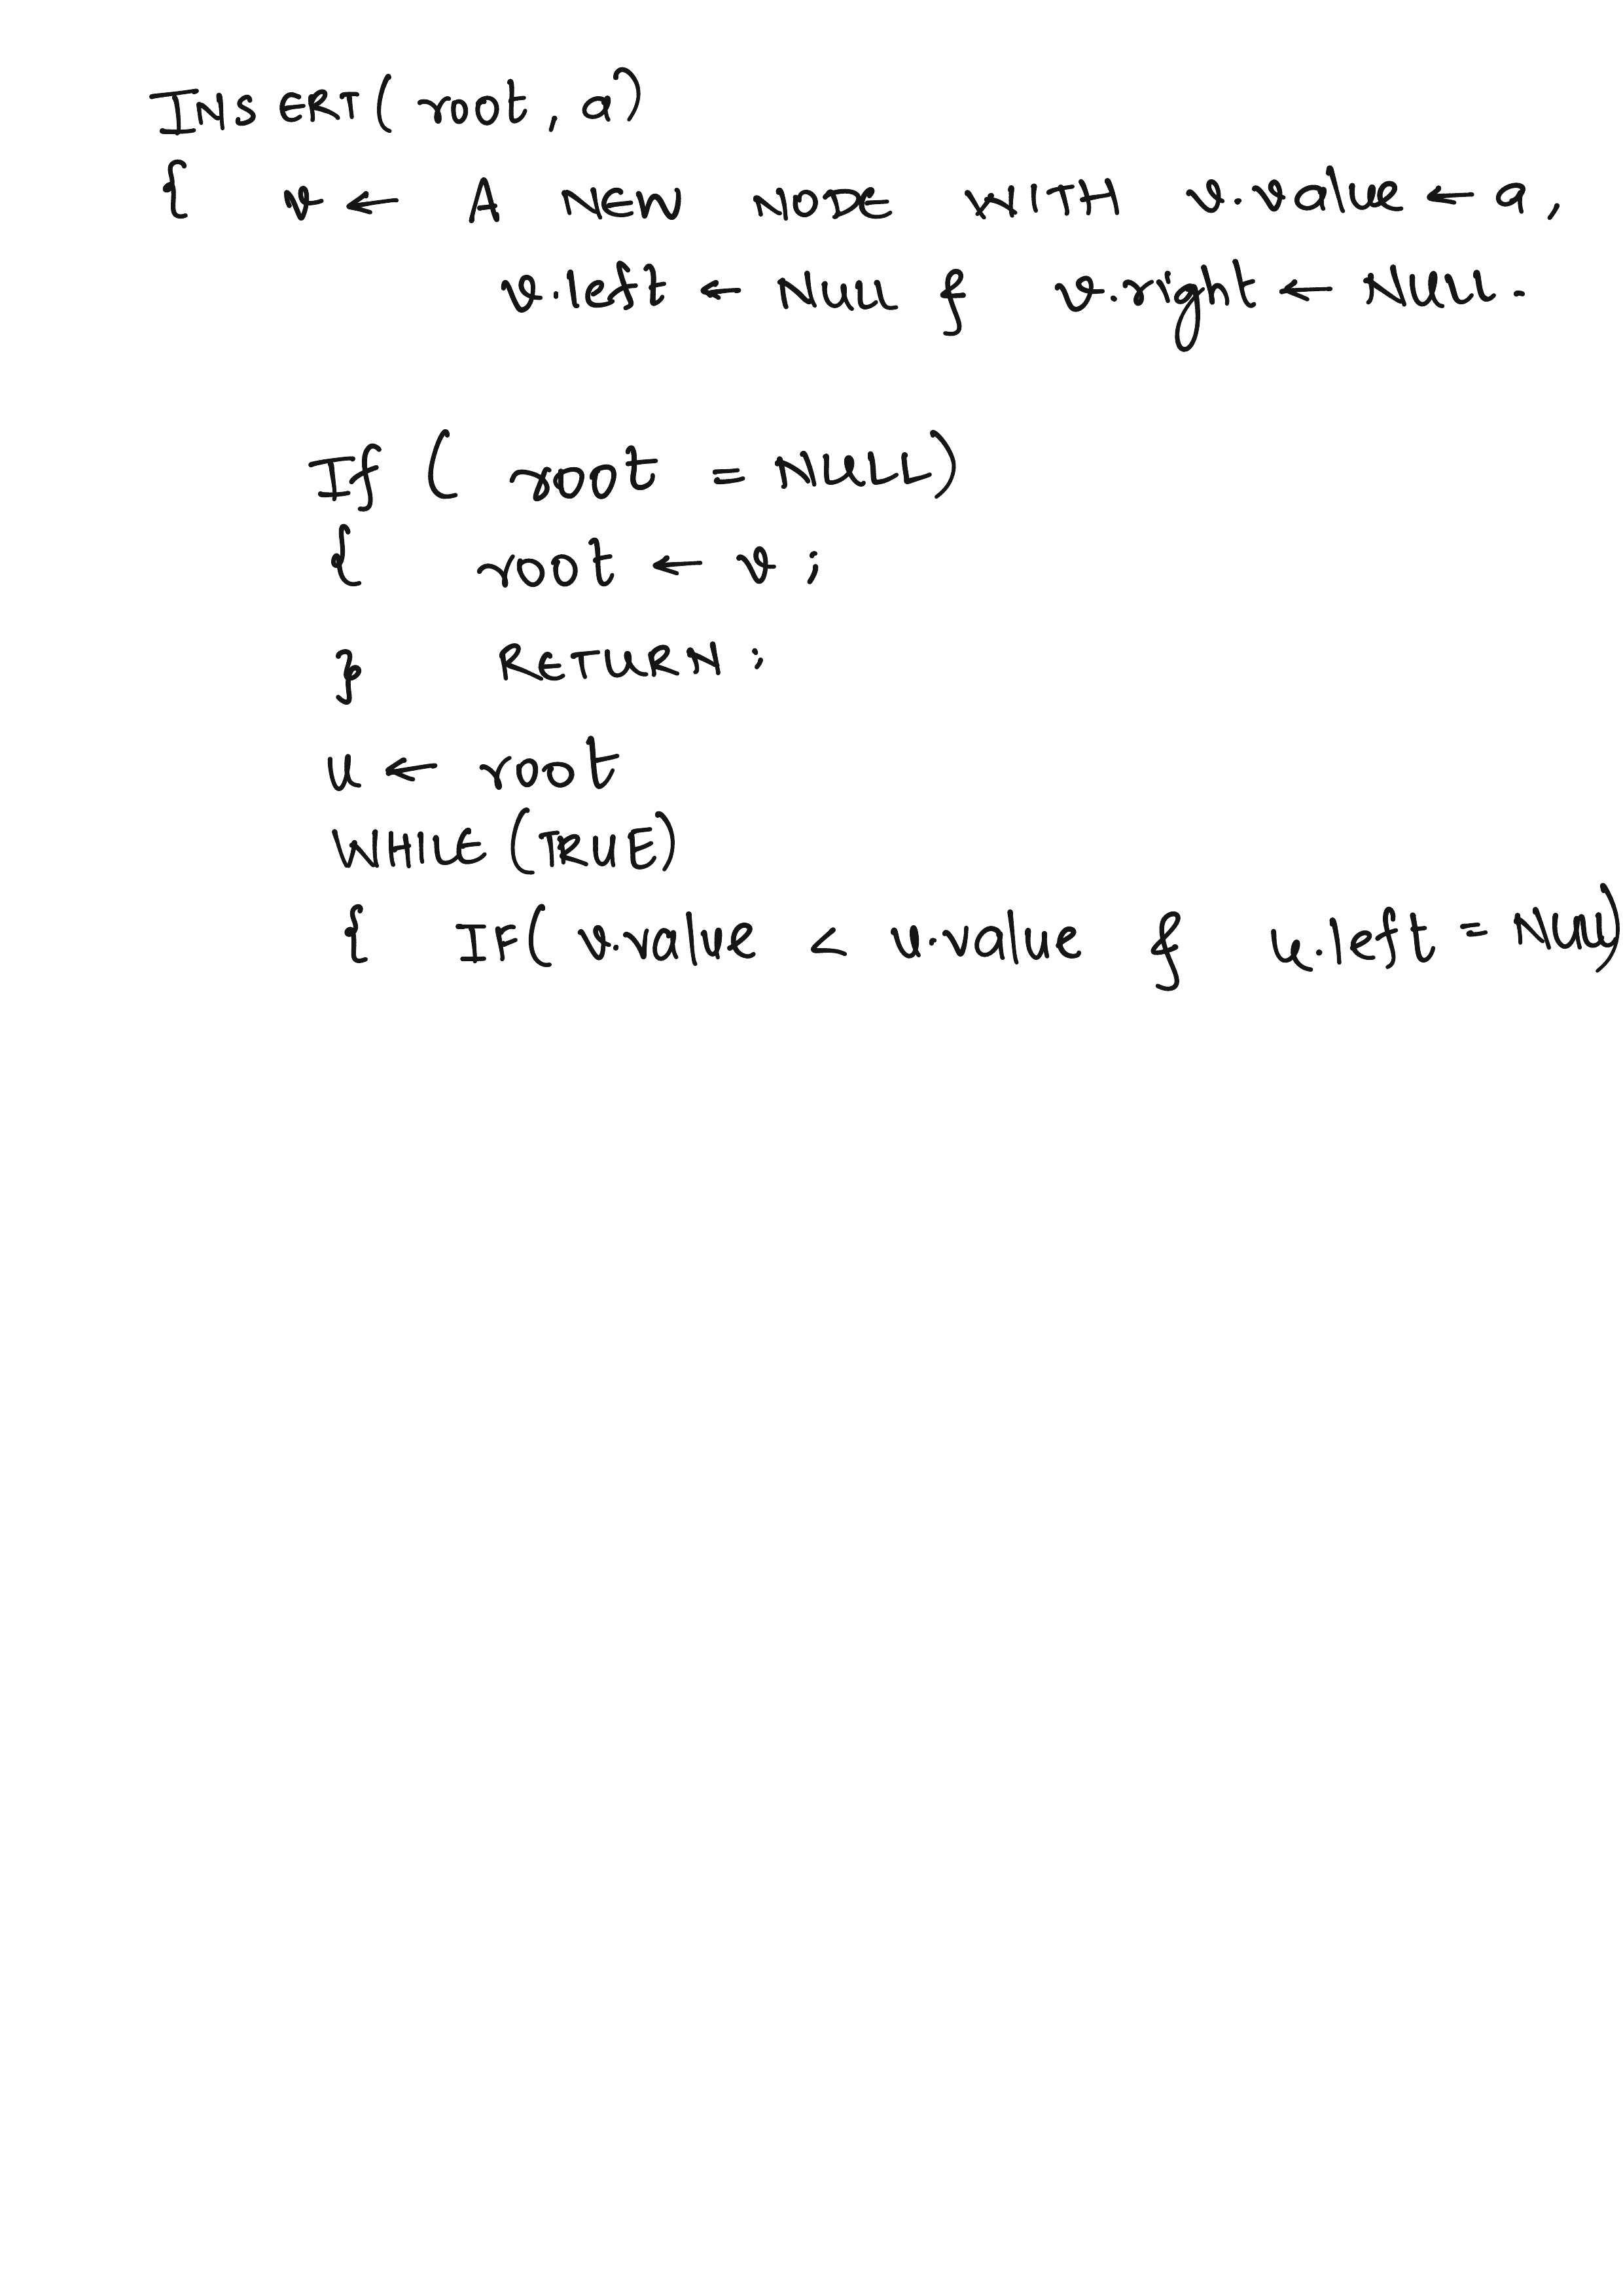 INSERT( root, a)
{ v ← A NEW NODE WITH v.value ← a,
v.left ← NULL & v.right ← NULL.
If ( root = NULL)
{ root ← v ;
} RETURN ;
u ← root
WHILE (TRUE)
{ IF( v.value < u.value & u.left = NULL)